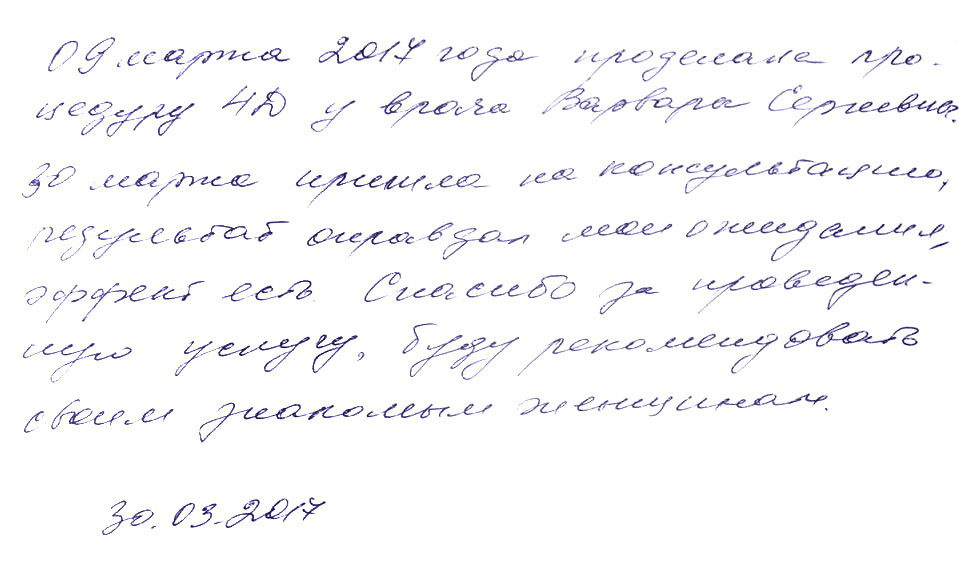 09 марта 2017 года проделала про-
цедуру 4D у врача Варвара Сергеевна.
30 марта пришла на консультацию,
результат оправдал мои ожидания,
эффект есть. Спасибо за проведен-
ную услугу, буду рекомендовать
своим знакомым женщинам.
30.03.2017